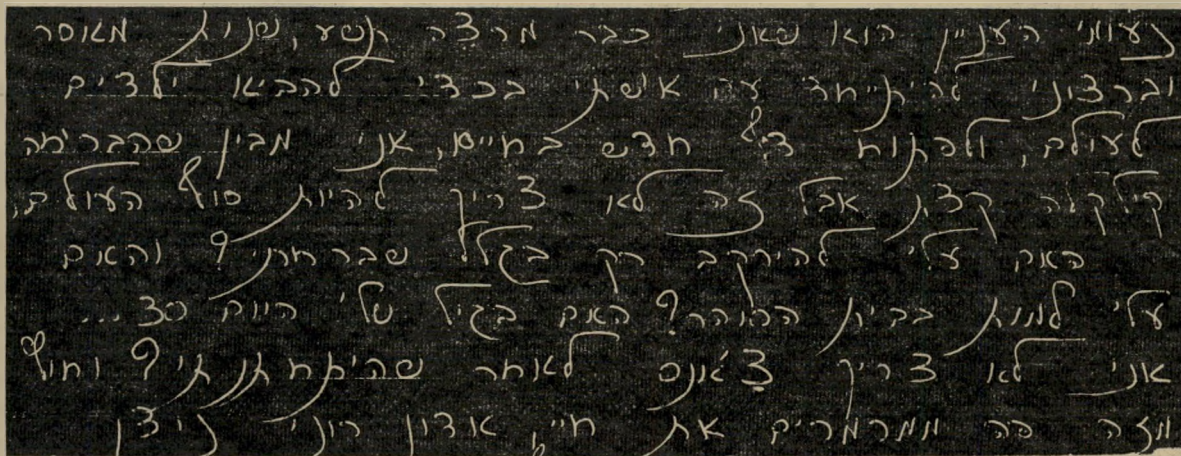 נעוני העניין הוא שאני כבר מרצה תשע שנות מאסר
וברצוני להיתייחד עם אישתי בכדי להביא ילדים
לעולם, ולפתוח דף חדש בחיים, אני מבין שהבריחה
קילקלה קצת אבל זה לא צריך להיות סוף העולם,
האם עלי להירקב רק בגלל שברחתי? והאם
עלי למות בבית הסוהר? האם בגיל שלי היום 30...
אני לא צריך צ'אנס לאחר שהיתחתנתי? וחוץ
מזה פה ממרמרים את חיי, אדון רוני ניצן